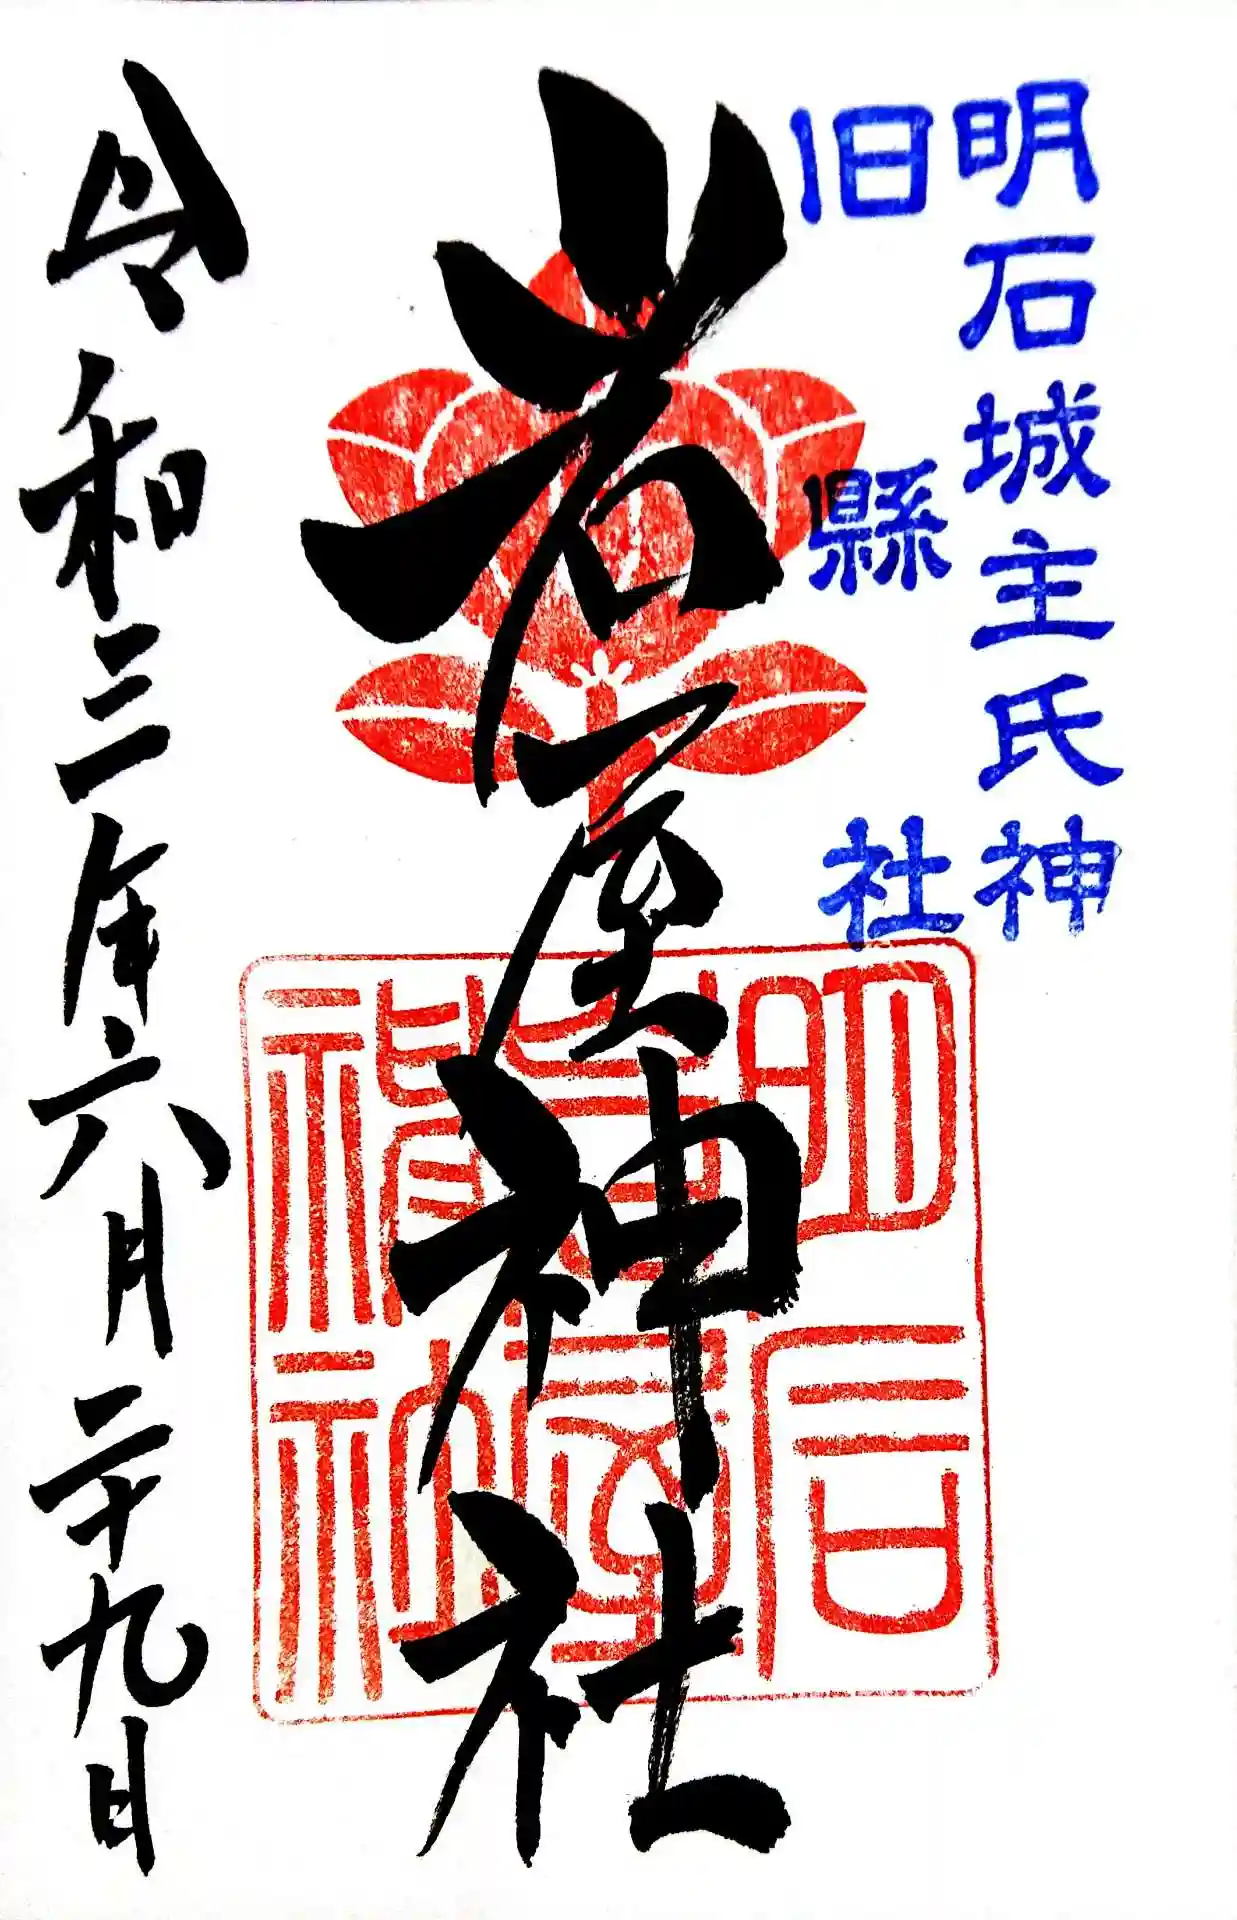 明石城主氏神
旧縣社
岩屋神社
令和三年六月二十九日
明石
岩屋
神社